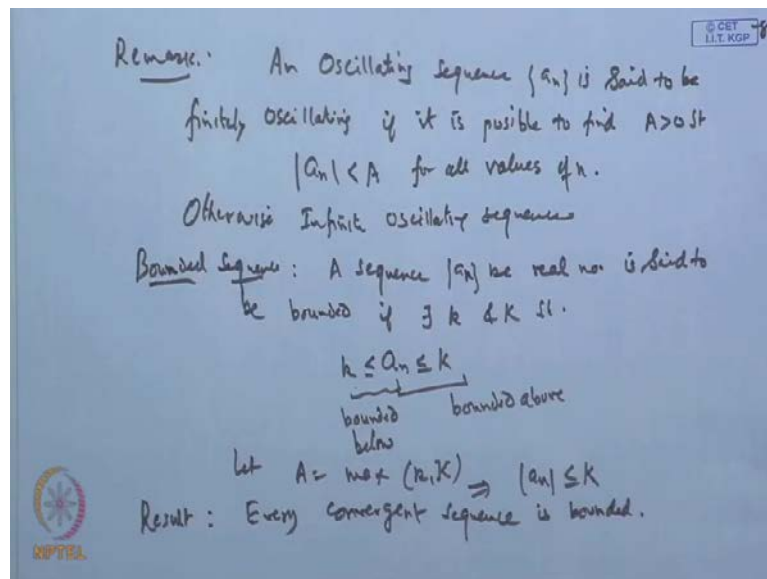 © CET
I.I.T. KGP
Remark: An Oscillating sequence {an} is said to be
finitely oscillating if it is posible to find A>0 st
|an| < A for all values of n.
Otherwise Infinite oscillating sequence
Bounded Sequence: A sequence {an} be real no. is said to
be bounded if ∃ k & K st.
k ≤ an ≤ K
bounded bounded above
below
Let A = max (k, K) ⇒ |an| ≤ K
Result: Every convergent sequence is bounded.
NPTEL